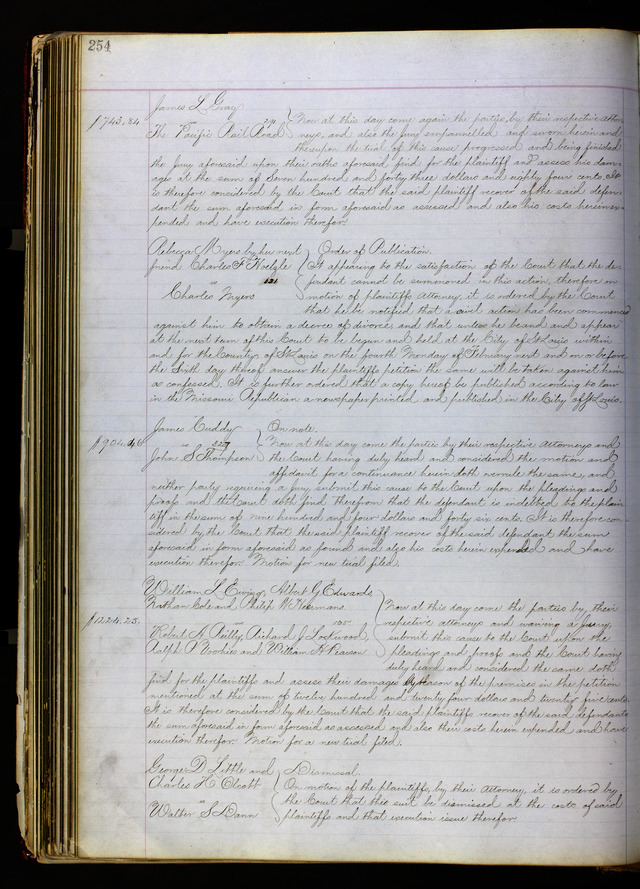 254
James L Gray
$743.84. vs 271 } Now at this day come again the parties by their respective attor-
The Pacific Rail Road neys, and also the Jury empannelled and sworn herein and
thereupon the trial of this cause progressed and being finished
the Jury aforesaid upon their oaths aforesaid find for the plaintiff and assess his dam-
age at the sum of Seven hundred and forty three dollars and eighty four cents. It
is therefore considered by the Court that the said plaintiff recover of the said defen-
dant the sum aforesaid in form aforesaid as assessed and also his costs herein ex-
pended and have execution therefor.
Rebecca Myers by her next } Order of Publication.
friend Charles F Hoelzle It appearing to the satisfaction of the Court that the de-
vs 121 fendant cannot be summoned in this action, therefore on
Charles Myers motion of plaintiffs Attorney, it is ordered by the Court
that he be notified that a civil action has been commenced
against him to obtain a decree of divorce, and that unless he be and appear
at the next term of this Court to be begun and held at the City of St Louis within
and for the County of St Louis on the fourth Monday of February next and on or before
the sixth day thereof answer the plaintiffs petition the same will be taken against him
as confessed. It is further ordered that a copy hereof be published according to law
in the Missouri Republican a newspaper printed and published in the City of St Louis.
James Cuddy } On note.
$904.46 vs 227 Now at this day come the parties by their respective Attorneys and
John S Thompson the Court having duly heard and considered the motion and
affidavit for a continuance herein doth overrule the same, and
neither party requiring a Jury submit this cause to the Court upon the pleadings and
proofs and the Court doth find therefrom that the defendant is indebted to the plain-
tiff in the sum of nine hundred and four dollars and forty six cents. It is therefore con-
sidered by the Court that the said plaintiff recover of the said defendant the sum
aforesaid in form aforesaid as found and also his costs herein expended and have
execution therefor. Motion for new trial filed.
William L Ewing, Albert G Edwards
Nathan Cole and Philip W Heermans } Now at this day come the parties by their
$1224.25. vs 105 respective attorneys and waiving a Jury,
Robert A Reilly, Richard J Lockwood, submit this cause to the Court upon the
Ralph P Voorhies and William H Pearson pleadings and proofs and the Court having
duly heard and considered the same doth
find for the plaintiffs and assess their damage by reason of the premises in the petition
mentioned at the sum of twelve hundred and twenty four dollars and twenty five cents.
It is therefore considered by the Court that the said plaintiffs recover of the said defendants
the sum aforesaid in form aforesaid as assessed and also their costs herein expended and have
execution therefor. Motion for a new trial filed.
George D Little and } Dismissal.
Charles H Olcott On motion of the plaintiffs, by their Attorney, it is ordered by
vs the Court that this suit be dismissed at the costs of said
Walter S Dann plaintiffs and that execution issue therefor.